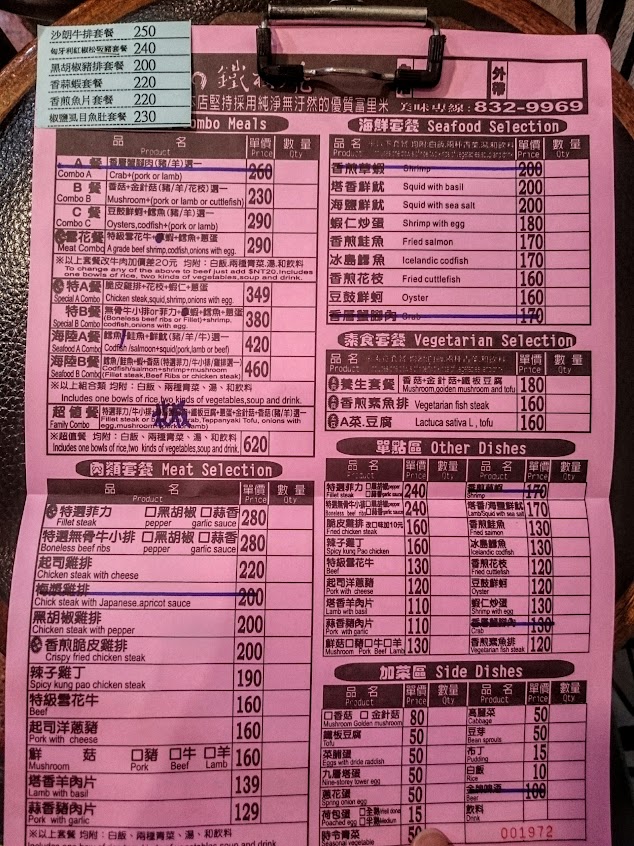 沙朗牛排套餐 250
匈牙利紅椒松阪豬套餐 240
黑胡椒豬排套餐 200
香蒜蝦套餐 220
香煎魚片套餐 220
椒鹽虱目魚肚套餐 230
鐵
外帶
本店堅持採用純淨無汙然的優質富里米 美味專線:832-9969
Combo Meals
品名 Product 單價 Price 數量 Qty
A 餐 香層蟹腳肉(豬/羊)選一 260
Combo A Crab+(pork or lamb)
B 餐 香菇+金針菇(豬/羊/花枝)選一 230
Combo B Mushroom+(pork or lamb or cuttlefish)
C 餐 豆鼓鮮蚵+鱈魚(豬/羊)選一 290
Combo C Oysters,codfish+(pork or lamb)
雪花餐 特級雪花牛+蝦+鱈魚+蔥蛋 290
Meat Combo A grade beef shrimp,codfish,onions with egg.
※以上套餐改牛肉加價差20元 均附:白飯、兩種青菜.湯.和飲料
To change any of above to beef just add $NT20.Includes
one bowls of rice, two kinds of vegetables,soup and drink.
特A餐 脆皮雞排+花枝+蝦仁+蔥蛋 349
Special A Combo Chicken steak,squid,shrimp,onions with egg.
特B餐 無骨牛小排or菲力+蝦+鱈魚+蔥蛋 380
Special B Combo (Boneless beef ribs or Fillet)+shrimp, codfish,onions with egg.
海陸A餐 鱈魚/鮭魚+鮮魷(豬/羊/牛)選一 420
Seafood A Combo Codfish/salmon+squid(pork,lamb or beef)
海陸B餐 鱈魚/鮭魚+蝦+香菇(特選菲力/牛小排/雞排選一) 460
Seafood B Combo Codfish/salmon+shrimp+mushroom (Fillet steak,Beef Ribs or chicken steak)
※以上組合類 均附:白飯、兩種青菜、湯、和飲料
Includes one bowls of rice,two kinds of vegetables,soup and drink.
超值餐
Family Combo
※超值餐 均附:白飯、兩種青菜、湯、和飲料 620
Includes one bowls of rice,two kinds of vegetables,soup and drink.
肉類套餐 Meat Selection
品名 Product 單價 Price 數量 Qty
特選菲力 □黑胡椒 □蒜香 280
Fillet steak pepper garlic sauce
特選無骨牛小排 □黑胡椒 □蒜香 280
Boneless beef ribs pepper garlic sauce
起司雞排 220
Chicken steak with cheese
梅漿雞排 200
Chick steak with Japanese.apricot sauce
黑胡椒雞排 200
Chicken steak with pepper
香煎脆皮雞排 200
Crispy fried chicken steak
辣子雞丁 190
Spicy kung pao chicken steak
特級雪花牛 160
Beef
起司洋蔥豬 160
Pork with cheese
鮮菇 □豬 □牛 □羊 160
Mushroom Pork Beef Lamb
塔香羊肉片 139
Lamb with basil
蒜香豬肉片 129
Pork with garlic
※以上套餐 均附:白飯、兩種青菜、湯、和飲料
海鮮套餐 Seafood Selection
品名 Product 單價 Price 數量 Qty
香煎草蝦 Shrimp 200
塔香鮮魷 Squid with basil 200
海鹽鮮魷 Squid with sea salt 200
蝦仁炒蛋 Shrimp with egg 180
香煎鮭魚 Fried salmon 170
冰島鱈魚 Icelandic codfish 170
香煎花枝 Fried cuttlefish 160
豆鼓鮮蚵 Oyster 160
香層蟹腳肉 Crab 170
素食套餐 Vegetarian Selection
養生套餐 香菇+金針菇+鐵板豆腐 180
Mushroom,golden mushroom and tofu
香煎素魚排 Vegetarian fish steak 160
A菜.豆腐 Lactuca sativa L , tofu 160
單點區 Other Dishes
品名 Product 單價 Price 數量 Qty 品名 Product 單價 Price 數量 Qty
特選菲力 □黑胡椒 □蒜香 240 香煎草蝦 170
Fillet steak Shrimp
特選無骨牛小排 240 塔香/海鹽鮮魷 170
Boneless beef ribs
脆皮雞排 改口味加10元 160 香煎鮭魚 130
Fried chicken steak Fried salmon
辣子雞丁 160 冰島鱈魚 130
Spicy kung Pao chicken Icelandic codfish
特級雪花牛 130 香煎花枝 120
Beef Fried cuttlefish
起司洋蔥豬 120 豆鼓鮮蚵 120
Pork with cheese Oyster
塔香羊肉片 110 蝦仁炒蛋 130
Lamb with basil Shrimp with egg
蒜香豬肉片 110 香層蟹腳肉 130
Pork with garlic Crab
鮮菇□豬□牛□羊 130 香煎素魚排 120
Mushroom Pork Beef Lamb Vegetarian fish steak
加菜區 Side Dishes
品名 Product 單價 Price 數量 Qty 品名 Product 單價 Price 數量 Qty
□香菇 □金針菇 80 高麗菜 50
Mushroom Golden mushroom Cabbage
鐵板豆腐 50 豆芽 50
Tofu Bean sprouts
菜脯蛋 50 布丁 15
Eggs with dride raddish Pudding
九層塔蛋 50 白飯 10
Nine-storey tower egg Rice
蔥花蛋 50 100
Spring onion egg Beer
荷包蛋 □全熟 15 飲料
Poached egg Drink
時令青菜 50
Seasonal vegetable
001972